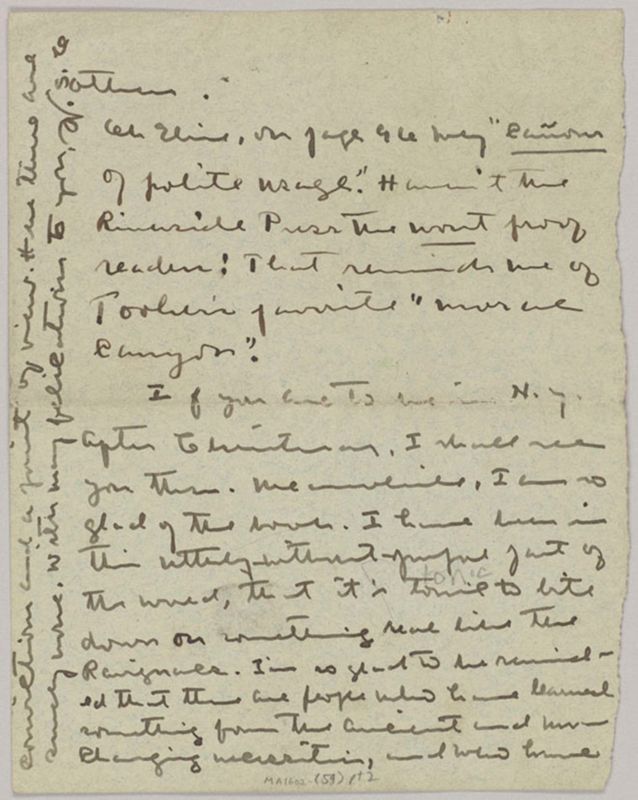 others.
Oh Elsie, on page "cañons
of polite usage". Haven't the
Riverside Press the worst proof
readers! That reminds me of
Tooker's favorite "moral
canyon".
If you are to be in N.Y.
after Christmas, I shall see
you then. Meanwhile, I am so
glad of the book. I have been in
this utterly-without-purpose part of
tonic
the world, that it's tonic to bite
down on something real like the
Ravignacs. I'm so glad to be remind-
ed that there are people who have learned
something from the ancient and un-
changing necessities, and who have
convictions and a point of view. Here there are
surely none. With many felicitations to you,
MA1602-(59) pt2